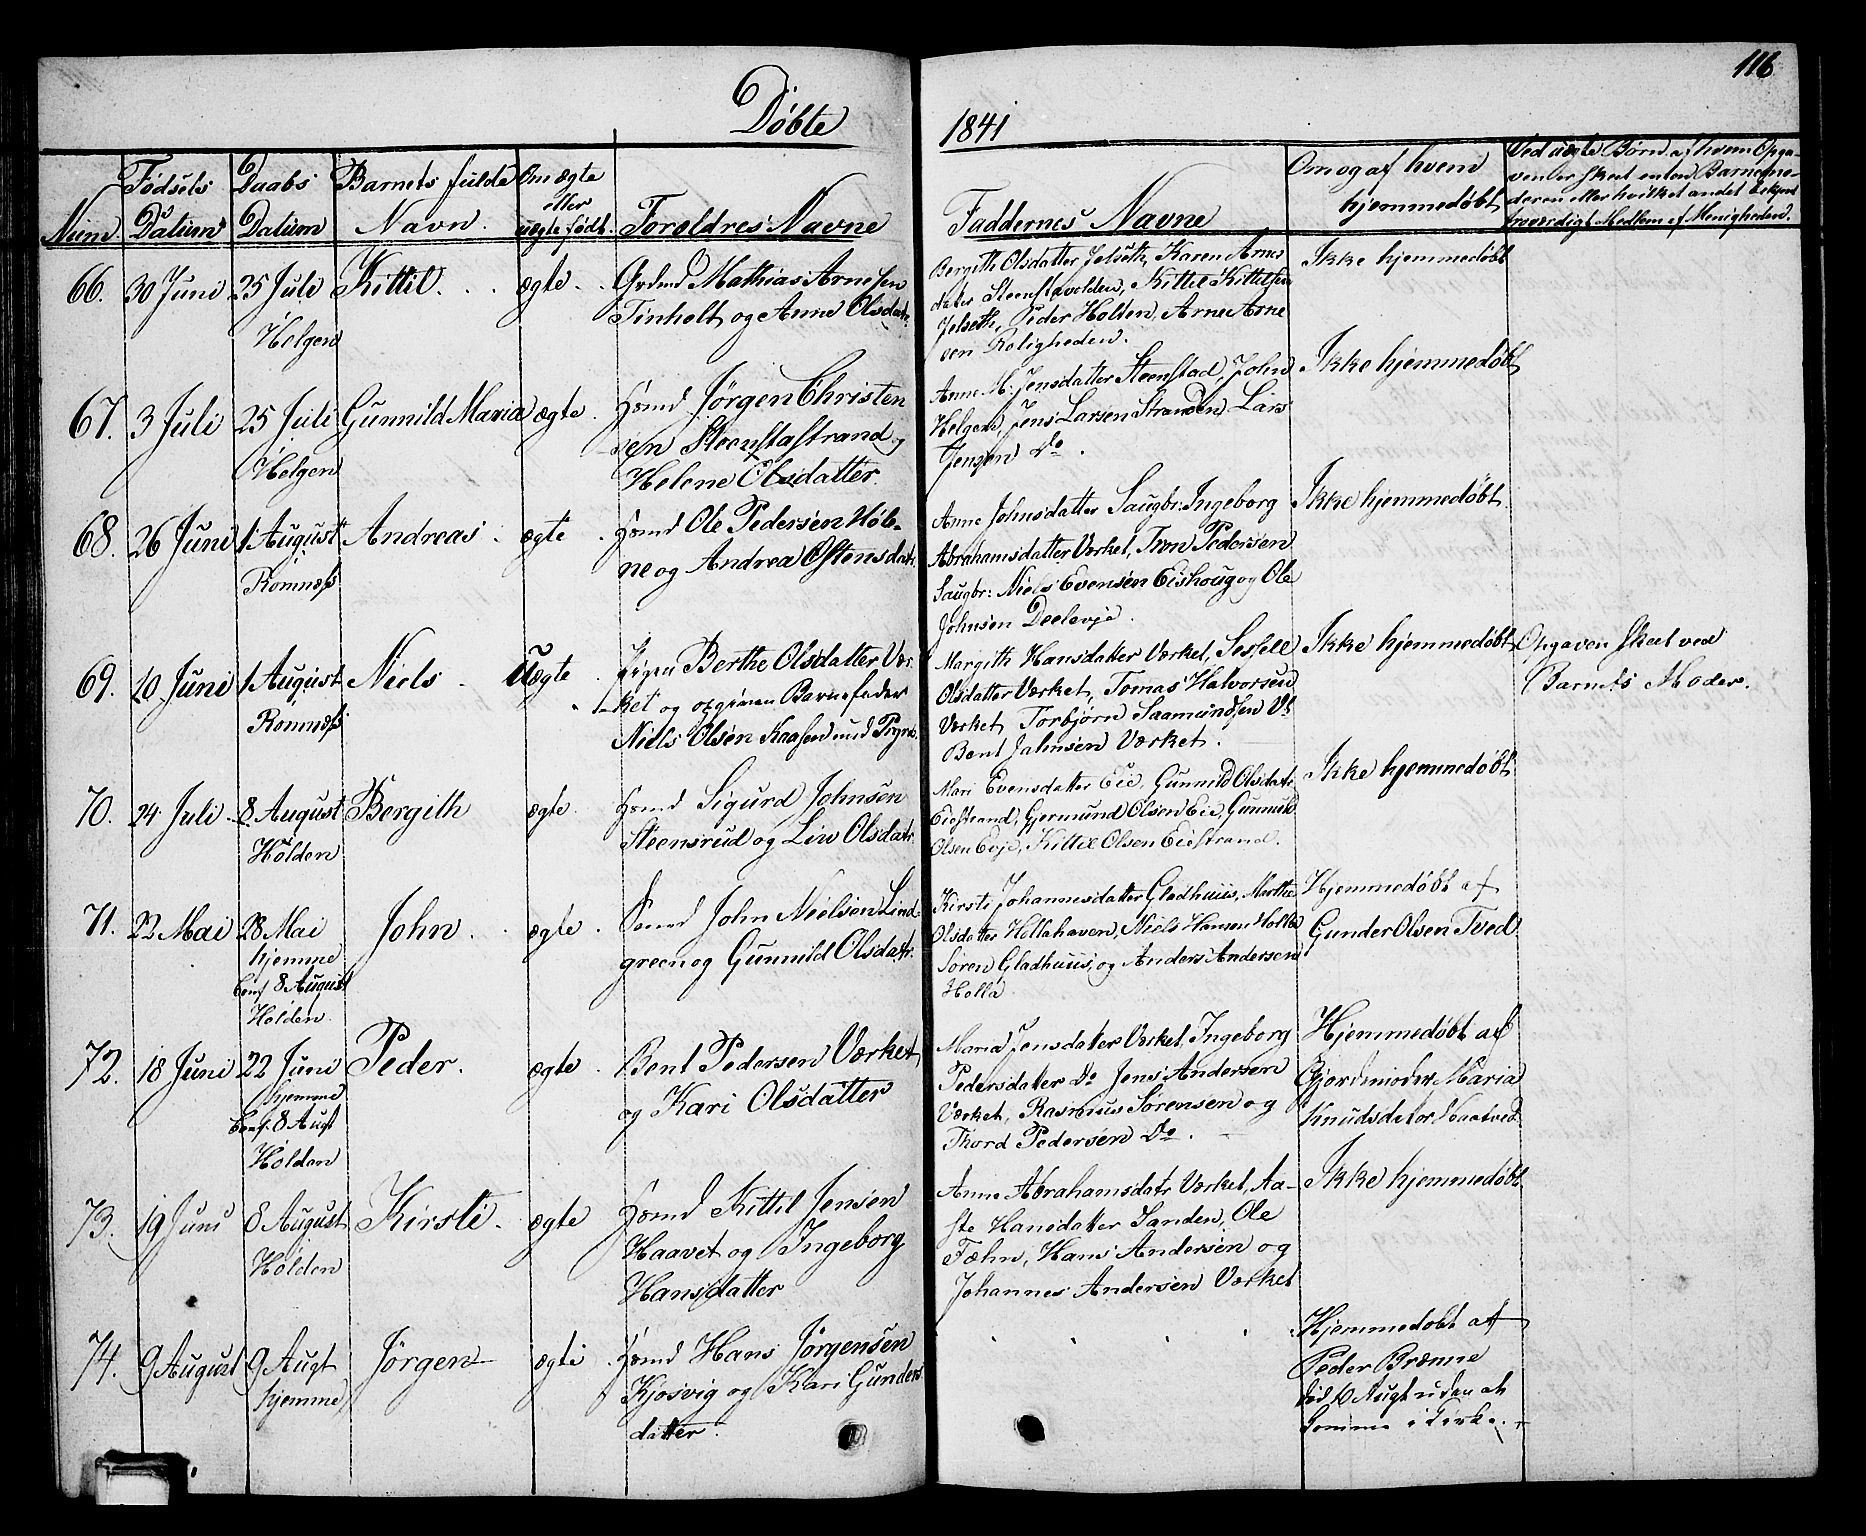 116
Døbte
1841
Num
Fødsels Datum
Daabs Datum
Barnets fulde Navn.
Om ægte eller uægte født.
Forældres Navne
Faddernes Navne
Om og af hvem hjemmedøbt
Ved uægte Børn af hvem Opga-
ven er skeet enten Barnemo-
deren eller hvilket andet bekjendt
troværdigt Medlem af Menigheden.
66.
30 Juni
25 Juli
Helgen
Kittil
ægte
Grdmd Mathias Arnesen
Tinholt og Anne Olsdatr
Bergith Olsdatter Jelseth, Karen Arnes
dater Steenstavolden, Kittil Kittilsen
Jelseth, Peder Holden, Arne Arne
sen Roligheden.
Ikke hjemmedøbt
67.
3 Juli
25 Juli
Helgen
Gunnild Maria
ægte
Hsmd Jørgen Christen
sen Steenstastrand og
Helene Olsdatter.
Anne M: Jensdatter Steenstad, John
Helgen, Jens Larsen Stranden Lars
Jensen Do.
Ikke hjemmedøbt
68.
26 Juni
1 August
Romnæs
Andreas
ægte
Hsmd Ole Pedersen Høb-
ne og Andrea Østensdatr.
Anne Johnsdatter Saugbr: Ingeborg
Abrahamsdatter Værket, Tron Pedersen
Saugbr: Niels Evensen Eishoug og Ole
Johnsen Deelevje.
Ikke hjemmedøbt
69.
10 Juni
1 August
Romnæs
Niels
Uægte
Pigen Berthe Olsdatter Vær
ket og opgiven Barnefader
Niels Olsen Kaasen und Pogre.
Margith Hansdatter Værket, Sessele
Olsdatter Værket, Tomas Halvorsen
Værket Torbjørn Saamundsen Vt
Bent Jahnsen Værket.
Ikke hjemmedøbt
Opgaven skeet ved
Barnets Moder.
70.
24 Juli
8 August
Holden
Bergith
ægte
Hsmd Sigurd Johnsen
Steensrud og Liv Olsdatr.
Mari Evensdatter Eie, Gunnild Olsdatr
Eiestrand, Gjermund Olsen Eie, Gunnuld
Olsen Evje, Kittil Olsen Eiestrand.
Ikke hjemmedøbt
71.
22 Mai
28 Mai
hjemme
Conf 8 August
Holden
John
ægte
Hsmd John Nielsen Lind-
green og Gunnild Olsdatr.
Kirsti Johannesdatter Gladhuus, Marthe
Olsdatter Hollahaven, Niels Hansen Holla
Søren Gladhuus, og Anders Andersen
Holla
Hjemmedøbt af
Gunder Olsen Tved
72.
18 Juni
22 Juni
hjemme
Conf. 8 Augt
Holden
Peder.
ægte
Bent Pedersen Værket
og Kari Olsdatter
Maria Jensdater Værket, Ingeborg
Pedersdatter Do Jens Andersen
Værket, Rasmus Sørensen og
Thord Pedersen Do.
Hjemmedøbt af
Gjordemoder Maria
Knudsdater Naatved
73.
19 Juni
8 August
Holden
Kirsti.
ægte
Hsmd Kittil Jensen
Haavet og Ingeborg
Hansdatter
Anne Abrahamsdatr Værket, Aa-
ste Hansdatter Sanden, Ole
Fæhn, Hans Andersen og
Johannes Andersen Værket
Ikke hjemmedøbt
74.
9 August
9 Augt
hjemme
Jørgen
ægte
Hsmd Hans Jørgensen
Kjosvig og Kari Gunders
datter.
Hjemmedøbt af
Peder Brænne
død 10 Augt uden at
komme i Kirke.